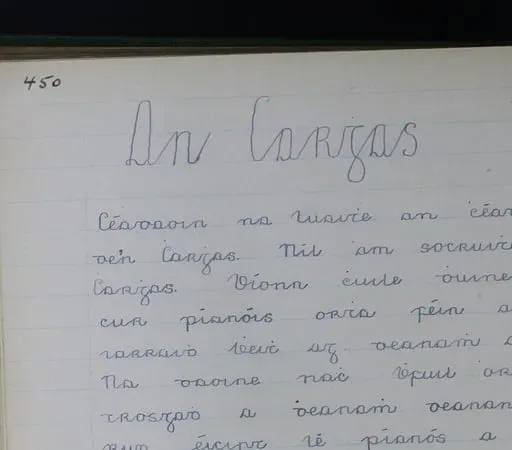 450
An Carġas
Céadaoin na Luaiṫe an céad
de'n Carġas. Níl am socruiġ
Carġas. Bíonn ċuile ḋuine
cur pianóis orṫa féin a
iarraiḋ ḃeiṫ ag deanaṁ
Na daoine naċ ḃfuil or
trosgaḋ a ḋeanaṁ deanan
rud éicint lé pianós a